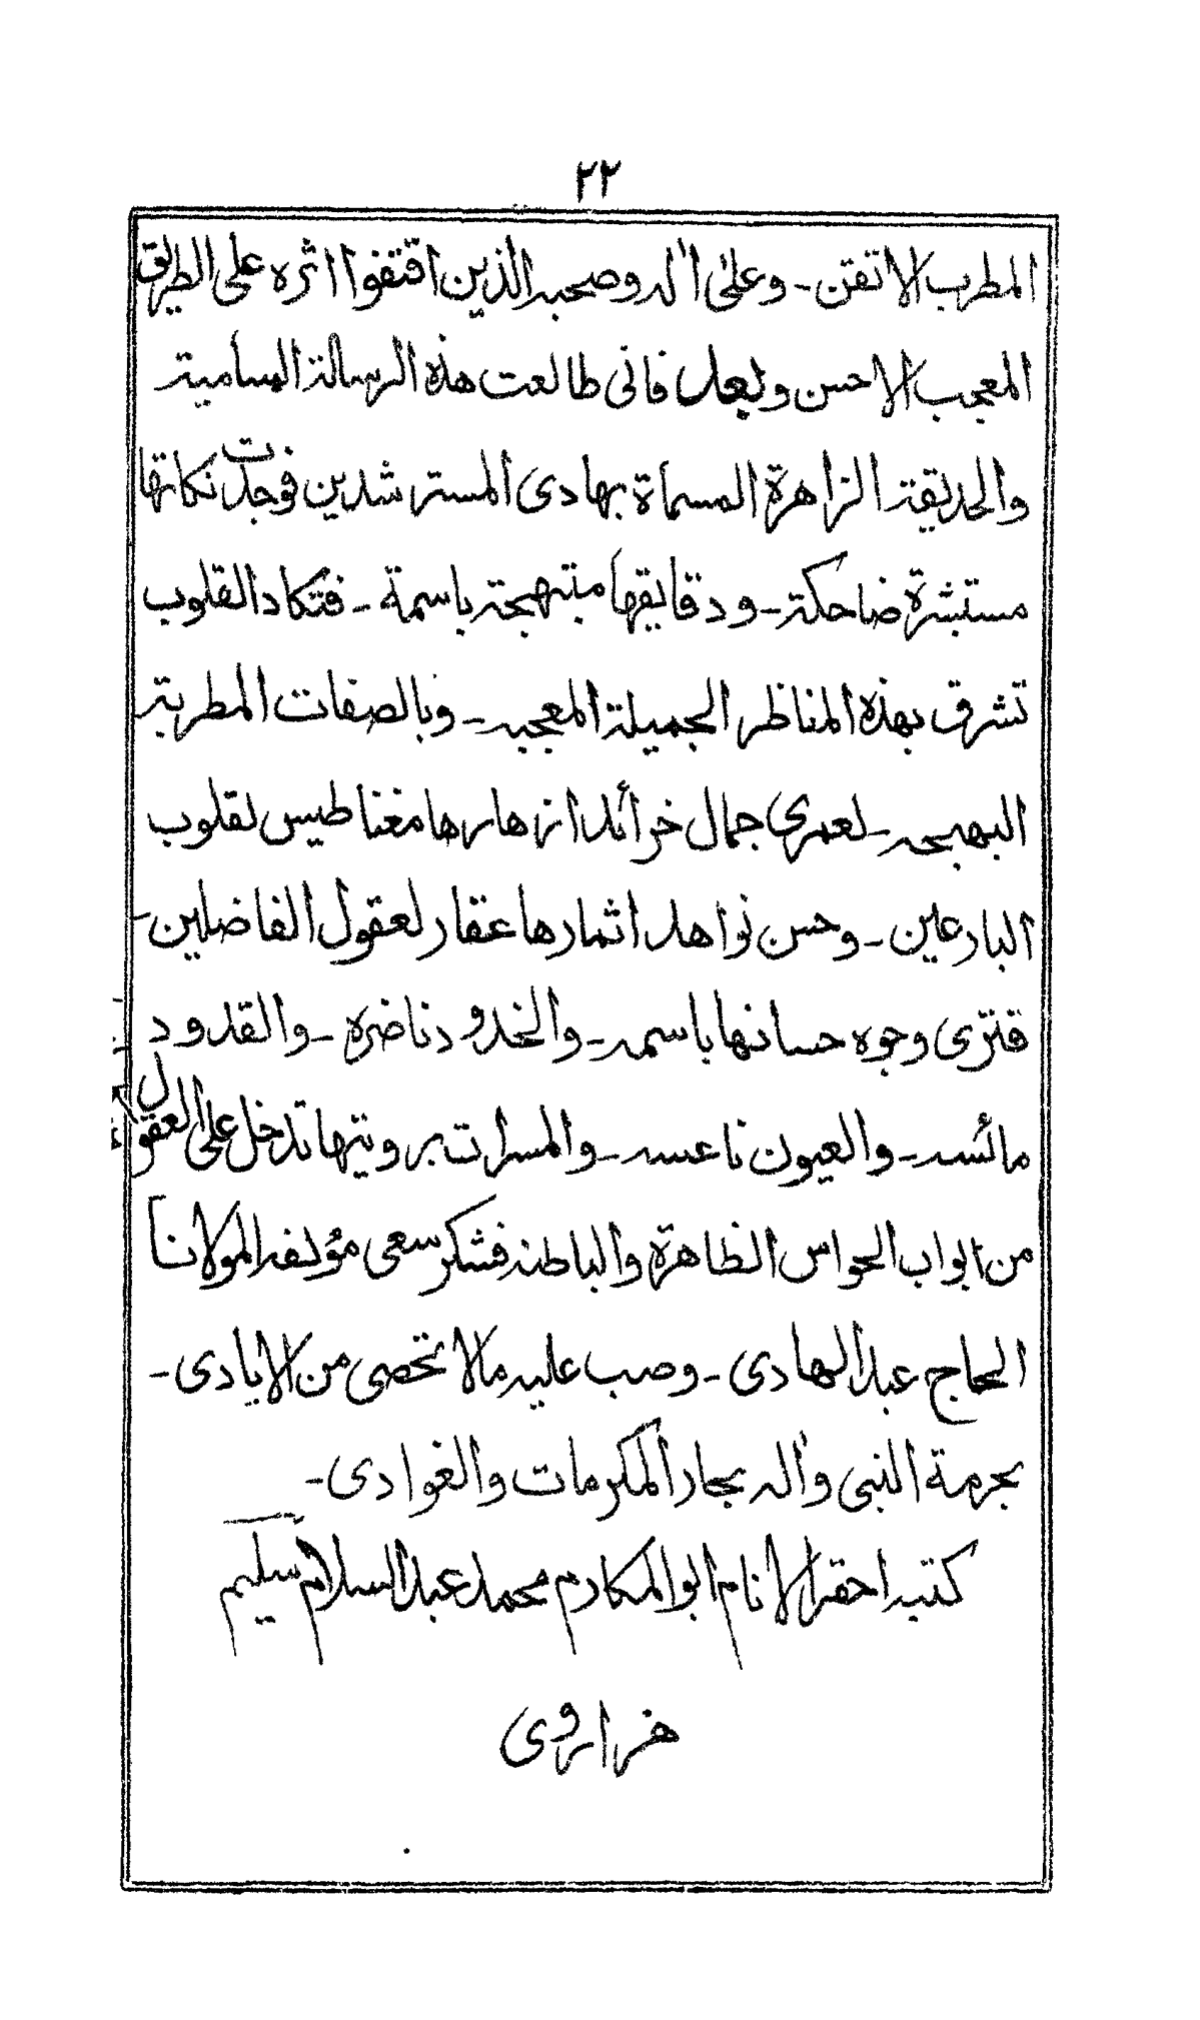 ٢٢
المطرب الاتقن ـ وعلى اٰله وصحبه الذين اقتفوا اثره على الطريق
المعجب الاحسن وبعد فانى طالعت هذه الرسالة السامية
والحديقة الزاهرة المسماة بهادى المسترشدين فوجدت نكاتها
مستبشرة ضاحكة ـ ودقايقها مبتهجة باسمة ـ فتكاد القلوب
تشرق بهذه المناظر الجميلة المعجبه ـ وبالصفات المطربة
البهيجه ـ لعمرى جمال خرائد ازهارها مغناطيس لقلوب
البارعين ـ وحسن نواهد اثمارها عقار لعقول الفاضلين ـ
فترى وجوه حسانها باسمه ـ والخدود ناضره ـ والقدود
مائسه ـ والعيون ناعسه ـ والمسرات برويتها تدخل على العقول
من ابواب الحواس الظاهرة والباطنه فشكر سعى مؤلفه المولانا
الحاج عبد الهادى ـ وصب عليه مالا تحصى من الايادى ـ
بحرمة النبى واٰله بحار المكرمات والغوادى ـ
كتبه احقر الانام ابو المكارم محمد عبد السلام سليم
هزاروى